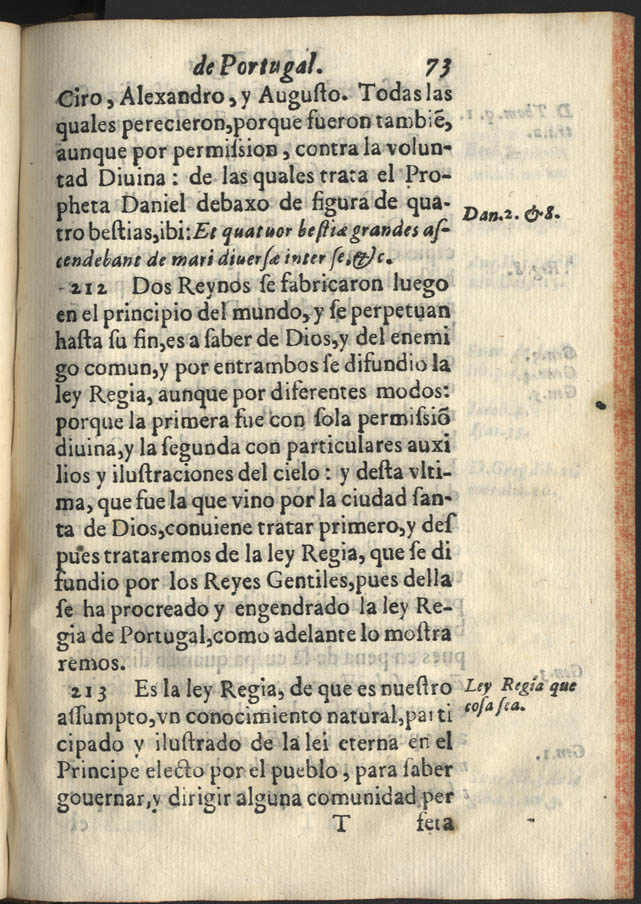 de Portugal. 73
Ciro, Alexandro, y Augusto. Todas las
quales perecieron, porque fueron tambiẽ,
aunque por permission, contra la volun-
tad Diuina: de las quales trata el Pro-
pheta Daniel debaxo de figura de qua-
tro bestias, ibi: Et quatuor bestiæ grandes as-
cendebant de mari diuersæ inter se, &c.
Dan. 2. & 8.
212 Dos Reynos se fabricaron luego
en el principio del mundo, y se perpetuan
hasta su fin, es a saber de Dios, y del enemi
go comun, y por entrambos se difundio la
ley Regia, aunque por diferentes modos:
porque la primera fue con sola permissiõ
diuina, y la segunda con particulares auxi
lios y ilustraciones del cielo: y desta vlti-
ma, que fue la que vino por la ciudad san-
ta de Dios, conuiene tratar primero, y des
pues trataremos de la ley Regia, que se di
fundio por los Reyes Gentiles, pues della
se ha procreado y engendrado la ley Re-
gia de Portugal, como adelante lo mostra
remos.
213 Es la ley Regia, de que es nuestro
assumpto, vn conocimiento natural, parti
cipado y ilustrado de la lei eterna en el
Principe electo por el pueblo, para saber
gouernar, y dirigir alguna comunidad per
Ley Regia que
cosa sea.
T feta